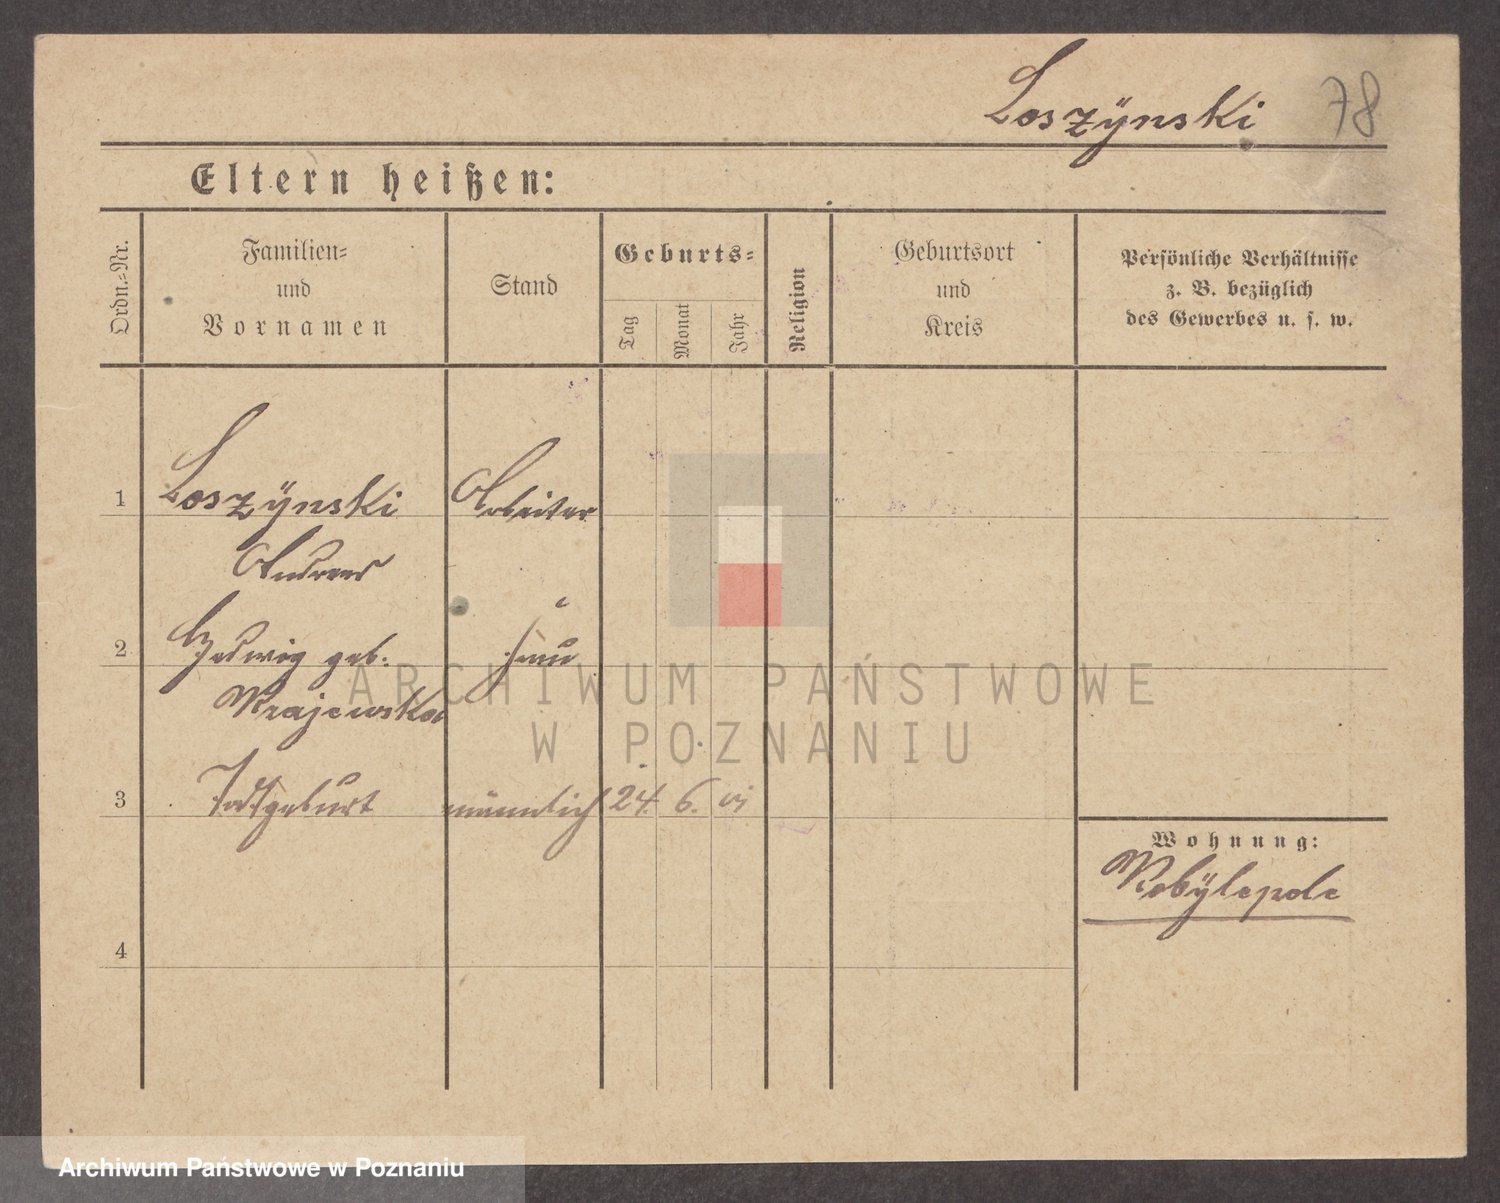 Loszÿnski 78
Eltern heißen:
Ordn.-Nr.
Familien-
und
Vornamen
Stand
Geburts-
Tag
Monat
Jahr
Religion
Geburtsort
und
Kreis
Persönliche Verhältnisse
z. B. bezüglich
des Gewerbes u. s. w.
1 Loszÿnski Arbeiter
Andreas
2 Hedwig geb. Frau
Krajewska
3 Todtgeburt männlich 24. 6.
Wohnung:
Kobÿlepole
4
ARCHIWUM PAŃSTWOWE
W POZNANIU
Archiwum Państwowe w Poznaniu